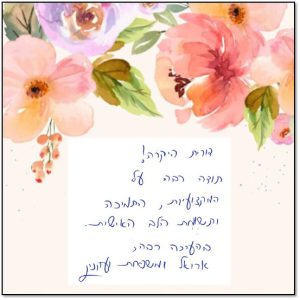 דורית היקרה!
תודה רבה על
המקצועיות, התמיכה
ותשומת הלב האישית.
בהערכה רבה,
אריאל ומשפחת